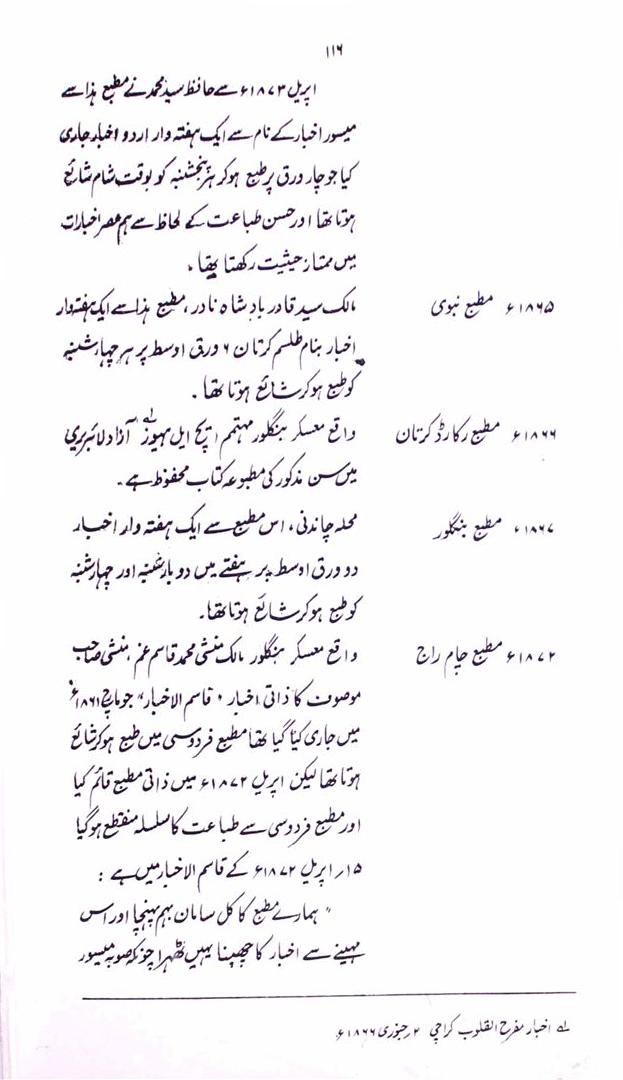 ۱۱۶
اپریل ۱۸۷۳ء سے حافظ سید محمد نے مطبع ہذا سے
میسور اخبار کے نام سے ایک ہفتہ وار اردو اخبار جاری
کیا جو چار ورق پر طبع ہو کر ہر پنجشنبہ کو بوقت شام شائع
ہوتا تھا اور حسن طباعت کے لحاظ سے ہم عصر اخبارات
میں ممتاز حیثیت رکھتا تھا۔
۱۸۶۵ء مطبع نبوی مالک سید قادر بادشاہ نادر، مطبع ہذا سے ایک ہفتہ وار
اخبار بنام طلسم کرتان ۶ ورق اوسط پر ہر چہارشنبہ
کو طبع ہو کر شائع ہوتا تھا۔
۱۸۶۶ء مطبع رکارڈ کرتان واقع معسکر بنگلور مہتمم ایچ ایل مہیوز لے آزاد لائبریری
میں سن مذکور کی مطبوعہ کتاب محفوظ ہے۔
۱۸۶۷ء مطبع بنگلور محلہ چاندنی، اس مطبع سے ایک ہفتہ وار اخبار
دو ورق اوسط پر ہفتے میں دو بار شنبہ اور چہارشنبہ
کو طبع ہو کر شائع ہوتا تھا۔
۱۸۷۲ء مطبع جام راج واقع معسکر بنگلور مالک منشی محمد قاسم غم، منشی صاحب
موصوف کا ذاتی اخبار "قاسم الاخبار" جو مارچ ۱۸۶۱ء
میں جاری کیا گیا تھا مطبع فردوسی میں طبع ہو کر شائع
ہوتا تھا لیکن اپریل ۱۸۷۲ء میں ذاتی مطبع قائم کیا
اور مطبع فردوسی سے طباعت کا سلسلہ منقطع ہو گیا
۱۵؍ اپریل ۱۸۷۲ء کے قاسم الاخبار میں ہے :
" ہمارے مطبع کا کل سامان بہم پہنچا اور اس
مہینے سے اخبار کا چھپنا یہیں ٹھہرا چونکہ صوبہ میسور
لے اخبار مفرح القلوب کراچی ۲؍ جنوری ۱۸۶۶ء